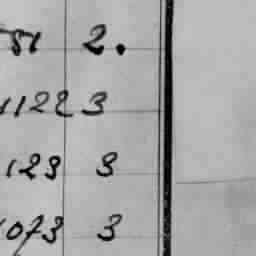 751 2.
1122 3
123 3
1073 3